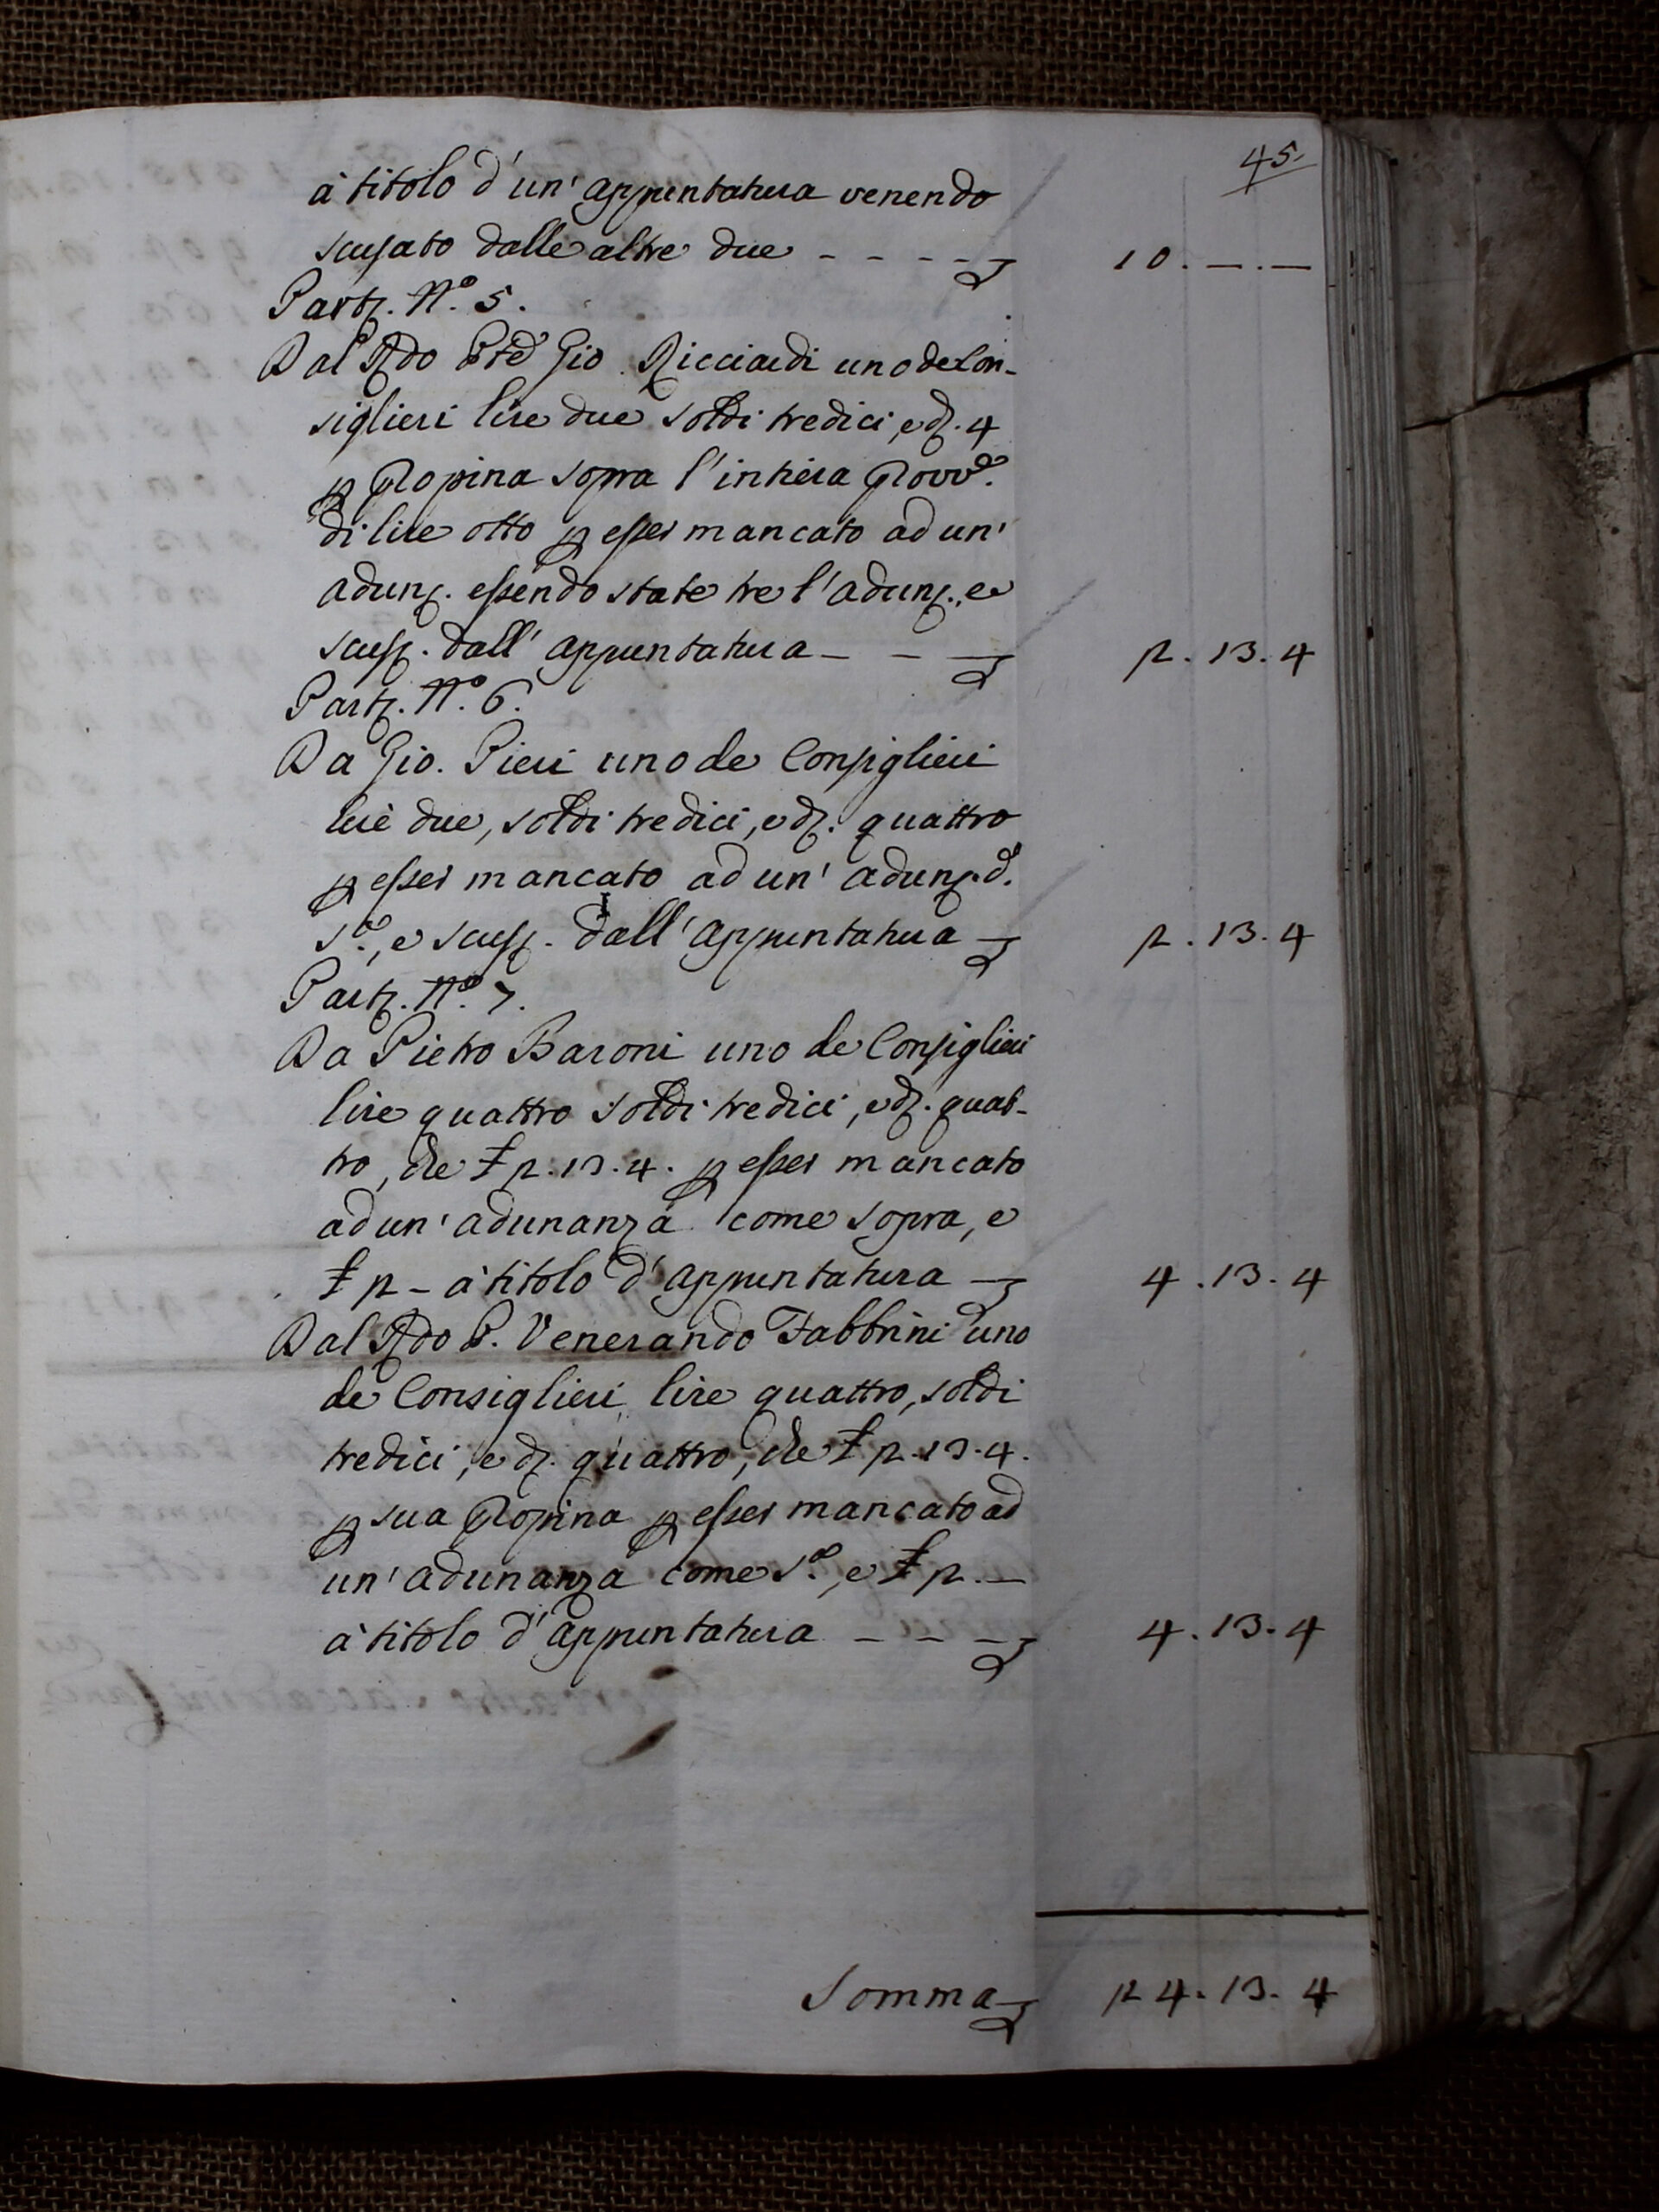 45.
à titolo d'un' appuntatura venendo
scusato dalle altre due - - - - - 10. — . —
Partz. N.º 5.
Dal Rdo Pre Gio. Ricciardi uno de Con-
siglieri lire due soldi tredici, e dz. 4
p propina sopra l'intiera provv.
di lire otto p esser mancato ad un'
adunz. essendo state tre l'adunz., e
scusz. dall' appuntatura - - — 2. 13. 4
Partz. N.º 6.
Da Gio. Pieri uno de Consiglieri
lire due, soldi tredici, e dz. quattro
p esser mancato ad un' adunz. d.
s.ª, e scusz. dall' appuntatura — 2. 13. 4
Partz. N.º 7.
Da Pietro Baroni uno de Consiglieri
lire quattro soldi tredici, e dz. quat-
tro, che £ 2. 13. 4. p esser mancato
ad un' adunanza come sopra, e
£ 2 - à titolo d'appuntatura — 4. 13. 4
Dal Rdo P. Venerando Fabbrini uno
de Consiglieri lire quattro, soldi
tredici, e dz. quattro, che £ 2. 13. 4.
p sua propina p esser mancato ad
un' adunanza come s.ª, e £ 2. —
à titolo d'appuntatura - - — 4. 13. 4
Somma 24. 13. 4